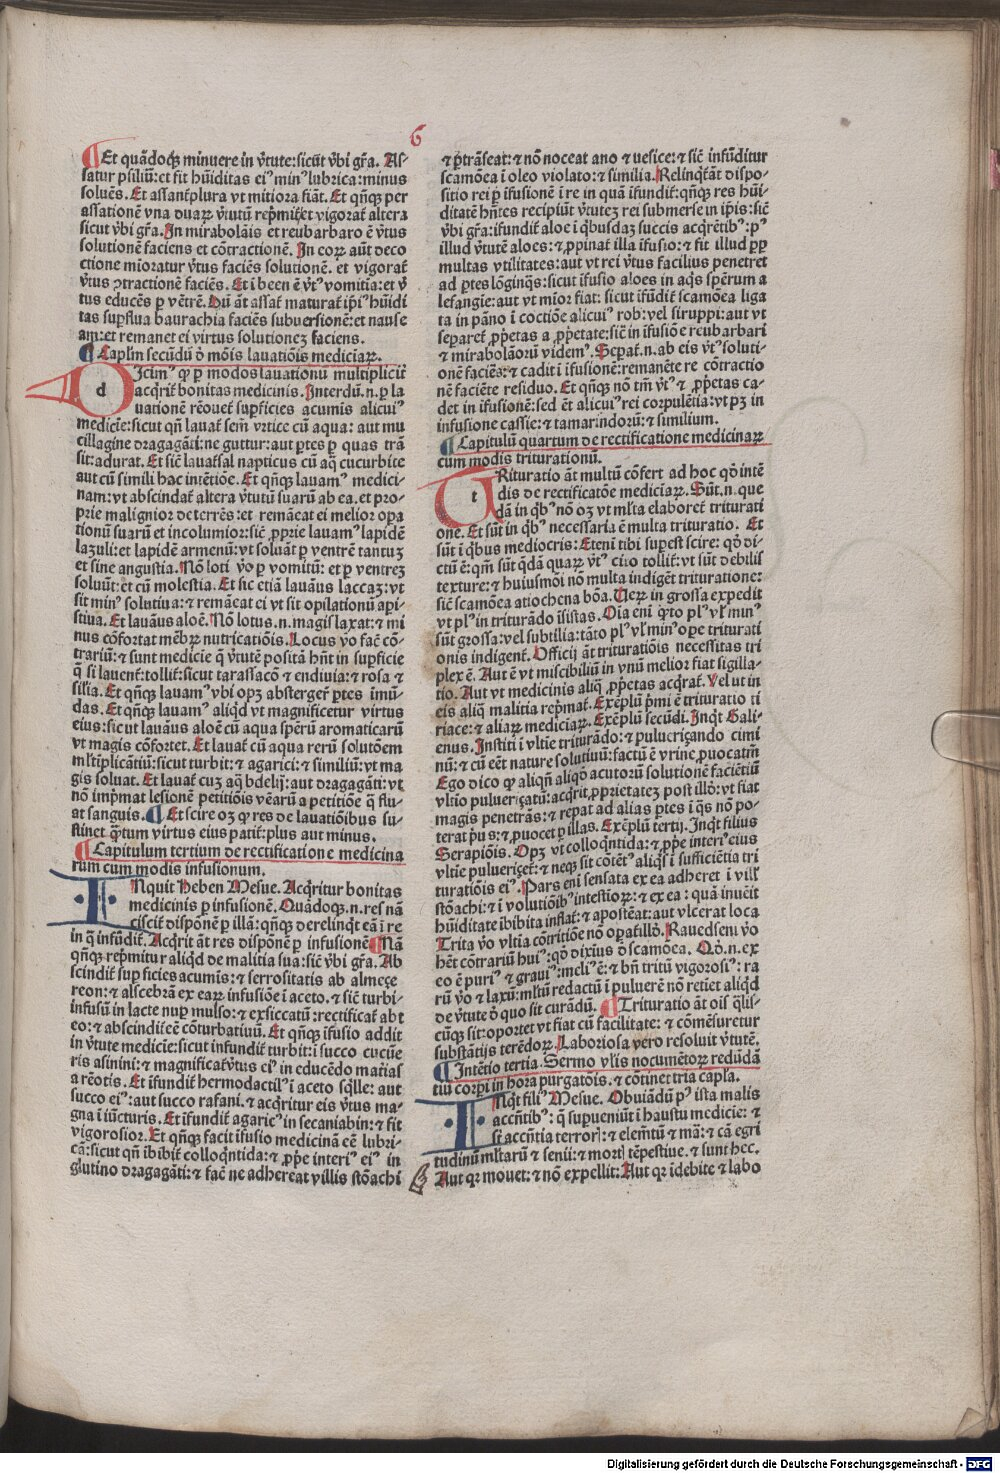 6
¶Et quãdoq̃ minuere in v̓tute: sicut v̓bi gr̃a. As-
satur psiliũ: et fit hũiditas eiꝰ minꝰ lubrica: minus
soluẽs. Et assant̃ plura vt mitiora fiãt. Et qñq̃ per
assationẽ vna duaꝝ v̓tutũ rep̓mit̃ et vigorat̃ altera
sicut v̓bi gr̃a. In mirabolãis et reubarbaro ẽ v̓tus
solutionẽ faciens et cõtractionẽ. In eoꝝ aũt deco
ctione mioratur v̓tus faciẽs solutionẽ. et vigorat̃
v̓tus ꝯtractionẽ faciẽs. Et i been ẽ v̓tꝰ vomitia: et v̓
tus educẽs ꝑ vẽtrẽ. Dũ ãt assat̃ maturat̃ ip̃iꝰ hũidi
tas suꝑflua baurachia faciẽs subuersionẽ: et nause
am: et remanet ei virtus solutionez faciens.
¶ Capl̃m secũdũ d̓ mõis lauatiõis mediciaꝝ.
d Icimꝰ qꝫ ꝑ modos lauationũ multiplicit̃
acq̃rit̃ bonitas medicinis. Interdũ .n. ꝑ la
uationẽ rẽouet̃ suꝑficies acumis alicuiꝰ
medicĩe: sicut qñ lauat̃ semẽ vrtice cũ aqua: aut mu
cillagine dragagãti: ne guttur: aut ꝑtes ꝑ quas trã
sit: adurat. Et sic̃ lauat̃ sal napticus cũ aq̃ cucurbite
aut cũ simili hac intẽtiõe. Et qñq̃ lauamꝰ medici-
nam: vt abscindat̃ altera v̓tutũ suarũ ab ea. et pro-
prie malignior de terrẽs: et remãeat ei melior oꝑa
tionũ suarũ et incolumior: sic̃ ꝓprie lauamꝰ lapidẽ
lazuli: et lapidẽ armenũ: vt soluãt ꝑ ventrẽ tantuz
et sine angustia. Nõ loti v̓o ꝑ vomitũ: et ꝑ ventrez
soluũt: et cũ molestia. Et sic etiã lauãus laccaz: vt
sit minꝰ solutiua: et remãeat ei vt sit opilationũ aꝑi-
stiua. Et lauãus aloẽ. Nõ lotus .n. magis laxat: et mi
nus cõfortat mẽbꝝ nutricatiõis. Locus v̓o fac̃ cõ-
trariũ: et sunt medicie q̃ v̓tutẽ positã hñt in suꝑficie
q̃ si lauent̃: tollit̃: sicut tarassacõ et endiuia: et rosa et
sil̃ia. Et qñq̃ lauamꝰ vbi opꝫ absterger̃ ꝑtes imũ-
das. Et qñq̃ lauamꝰ aliq̃d vt magnificetur virtus
eius: sicut lauãus aloẽ cũ aqua sꝑerũ aromaticarũ
vt magis cõfortet. Et lauat̃ cũ aqua rerũ solutõem
ml̃tiplicãtiũ: sicut turbit: et agarici: et similiũ: vt ma
gis soluat. Et lauat̃ cuz aq̃ bdelij: aut dragagãti: vt
nõ imp̓mat lesionẽ petitiõis vẽarũ a petitiõe q̃ flu-
at sanguis. ¶ Et scire oꝫ qꝫ res de lauatiõibus su-
stinet q̃tum virtus eius patit̃: plus aut minus.
¶Capitulum tertium de rectificatione medicina
rum cum modis infusionum.
I Nquit Heben Mesue. Acq̃ritur bonitas
medicinis ꝑ infusionẽ. Quãdoq̃ .n. res nã
ciscit̃ disponẽ ꝑ illã: qñq̃ derelinq̃t eã i re
in q̃ infũdit̃. Acq̃rit ãt res disponẽ ꝑ infusionẽ ¶Nã
qñq̃ rep̓mitur aliq̃d de malitia sua: sic̃ v̓bi gr̃a. Ab
scindit̃ suꝑficies acumis: et serrositatis ab almeçe
reon: et alscebrã ex eaꝝ infusiõe i aceto. et sic̃ turbi-
infusũ in lacte nuꝑ mulso: et exsiccatũ: rectificat̃ ab t
eo: et abscindit̃ eẽ cõturbatiuũ. Et qñq̃ ifusio addit
in v̓tute medicie: sicut infundit̃ turbit: i succo cucũe
ris asinini: et magnificat̃ v̓tus eiꝰ in educẽdo mat̃ias
a rẽotis. Et ifundit̃ hermodactilꝰ i aceto sq̃lle: aut
succo eiꝰ: aut succo rafani. et acq̃ritur eis v̓tus ma-
gna i iũcturis. Et ifundit̃ agaricꝰ in secaniabin: et fit
vigorosior. Et qñq̃ facit ifusio medicinã eẽ lubri-
cã: sicut qñ ibibit̃ colloq̃ntida: et ꝓp̓e interiꝰ eiꝰ in
glutino dragagãti: et fac̃ ne adhereat villis stõachi
et ꝑtrãseat: et nõ noceat ano et vesice: et sic̃ infũditur
scamõea i oleo violato: et similia. Relinq̃t̃ ãt dispo-
sitio rei ꝑ ifusionẽ i re in quã ifundit̃: qñq̃ res hũi-
ditatẽ hñtes recipiũt v̓tutez rei submerse in ip̃is: sic̃
v̓bi gr̃a: ifundit̃ aloe i q̃busdaz succis acq̃rẽtibꝰ: pꝰ
illud v̓tutẽ aloes: et ꝓpinat̃ illa ifusio: et fit illud ꝓpꝑ
multas vtilitates: aut vt rei v̓tus facilius penetret
ad ꝑtes lõginq̃s: sicut ifusio aloes in aq̃s sꝑerum a
lefangie: aut vt mior fiat: sicut ifũdit̃ scamõea liga
ta in pãno i coctiõe alicuiꝰ rob: vel siruppi: aut vt
separet̃ ꝓp̓etas a ꝓp̓etate: sic̃ in ifusiõe reubarbari
et mirabolãorũ videmꝰ. Seꝑat̃ .n. ab eis v̓tꝰ soluti-
onẽ faciẽs: et cadit i ifusionẽ: remanẽte re cõtractio
nẽ faciẽte residuo. Et qñq̃ nõ tm̃ v̓tꝰ et ꝓp̓etas ca-
det in ifusionẽ: sed ẽt alicuiꝰ rei corpulẽtia: vt pꝫ in
infusione cassie: et tamarindorũ: et similium.
¶Capitulũ quartum de rectificatione medicinaꝝ
cum modis triturationũ.
t Rituratio ãt multũ cõfert ad hoc qd̓ intẽ
dis de rectificatõe mediciaꝝ. Sũt .n. que
dã in q̃bꝰ nõ oꝫ vt ml̃ta elaboret̃ triturati
one. Et sũt in q̃bꝰ necessaria ẽ multa trituratio. Et
sũt i q̃bus mediocris: Etenĩ tibi supest scire: qd̓ di-
ctũ ẽ: qm̃ sũt q̃dã quaꝝ v̓tꝰ cito tollit̃: vt sũt debilis
texture: et huiusmõi nõ multa indigẽt triturationẽ:
sic̃ scamõea atiochena bõa. Uerꝫ in grossa expedit
vt plꝰ in triturãdo ĩsistas. Oĩa enĩ q̃to plꝰ vl̃ minꝰ
sũt grossa: vel subtilia: tãto plꝰ vl̃ minꝰ oꝑe triturati
onis indigent̃. Officij ãt trituratiõis necessitas tri
plex ẽ. Aut ẽ vt miscibiliũ in vnũ melior fiat sigilla-
tio. Aut vt medicinis aliq̃ ꝓp̓etas acq̃rat̃. Vel ut in
eis aliq̃ malitia rep̓mat̃. Exẽplũ p̓mi ẽ trituratio ti
riace: et aliaꝝ mediciaꝝ. Exẽplũ secũdi. Inq̃t Gali-
enus. Institi i vltĩe triturãdo: et puluerizando cimi
nũ: et cũ eẽt nature solutiuũ: factũ ẽ vrinę ꝓuocatiũ
Ego dico qꝫ aliqñ aliq̃o acutorũ solutionẽ faciẽtiũ
vltio pulueriçatũ: acq̃rit ꝓprietatez post illd̓: vt fiat
magis penetrãs: et repat ad alias ꝑtes i q̃s nõ po-
terat p̓us: et ꝓuocet ꝑ illas. Exẽplũ tertij. Inq̃t filius
Serapiõis. Opꝫ vt colloq̃ntida: et ꝓp̓e interiꝰ eius
vltie pulueriçet̃: et neqꝫ sit cõtẽtꝰ aliq̃s i sufficiẽtia tri
turatiõis eiꝰ. Pars enĩ sensata ex ea adheret i vill̃
stõachi: et i volutiõibꝰ intestioꝝ: et ex ea: quã inuẽit
hũiditate ibibita inflat̃: et apostẽat: aut vlcerat loca
Trita v̓o vltĩa cõtritiõe nõ oꝑat̃ illd̓. Rauedseni v̓o
hẽt cõtrariũ huiꝰ: qd̓ diximꝰ d̓ scamõea. Qd̓ .n. ex
eo ẽ puriꝰ et grauiꝰ: meliꝰ ẽ: et bñ tritũ vigorosiꝰ: ra
rũ v̓o et laxũ: ml̃tũ redactũ i puluerẽ nõ retiet aliq̃d
de v̓tute d̓ quo sit curãdũ. ¶Trituratio ãt oĩs q̃lis-
cũqꝫ sit: oportet vt fiat cũ facilitate: et cõmẽsuretur
substãtijs terẽdoꝝ. Laboriosa v̓ero resoluit v̓tutẽ.
¶Intẽtio tertia. Sermo vl̃is nocumẽtoꝝ redũdã
tiũ corꝑi in hora purgatõis. et cõtinet tria capl̃a.
I Nq̃t filiꝰ Mesue. Obuiãdũ pꝰ ista malis
accñtibꝰ: q̃ supueniũt i haustu medicie: et
st̃ accñtia terrorꝫ: et elemt̃ũ et mã: et cã egri
tudinũ ml̃tarũ et senij: et mortꝫ tẽpestiue. et sunt hec.
Aut qꝛ mouet: et nõ expellit: Aut qꝛ idebite et labo
Digitalisierung gefördert durch die Deutsche Forschungsgemeinschaft - DFG